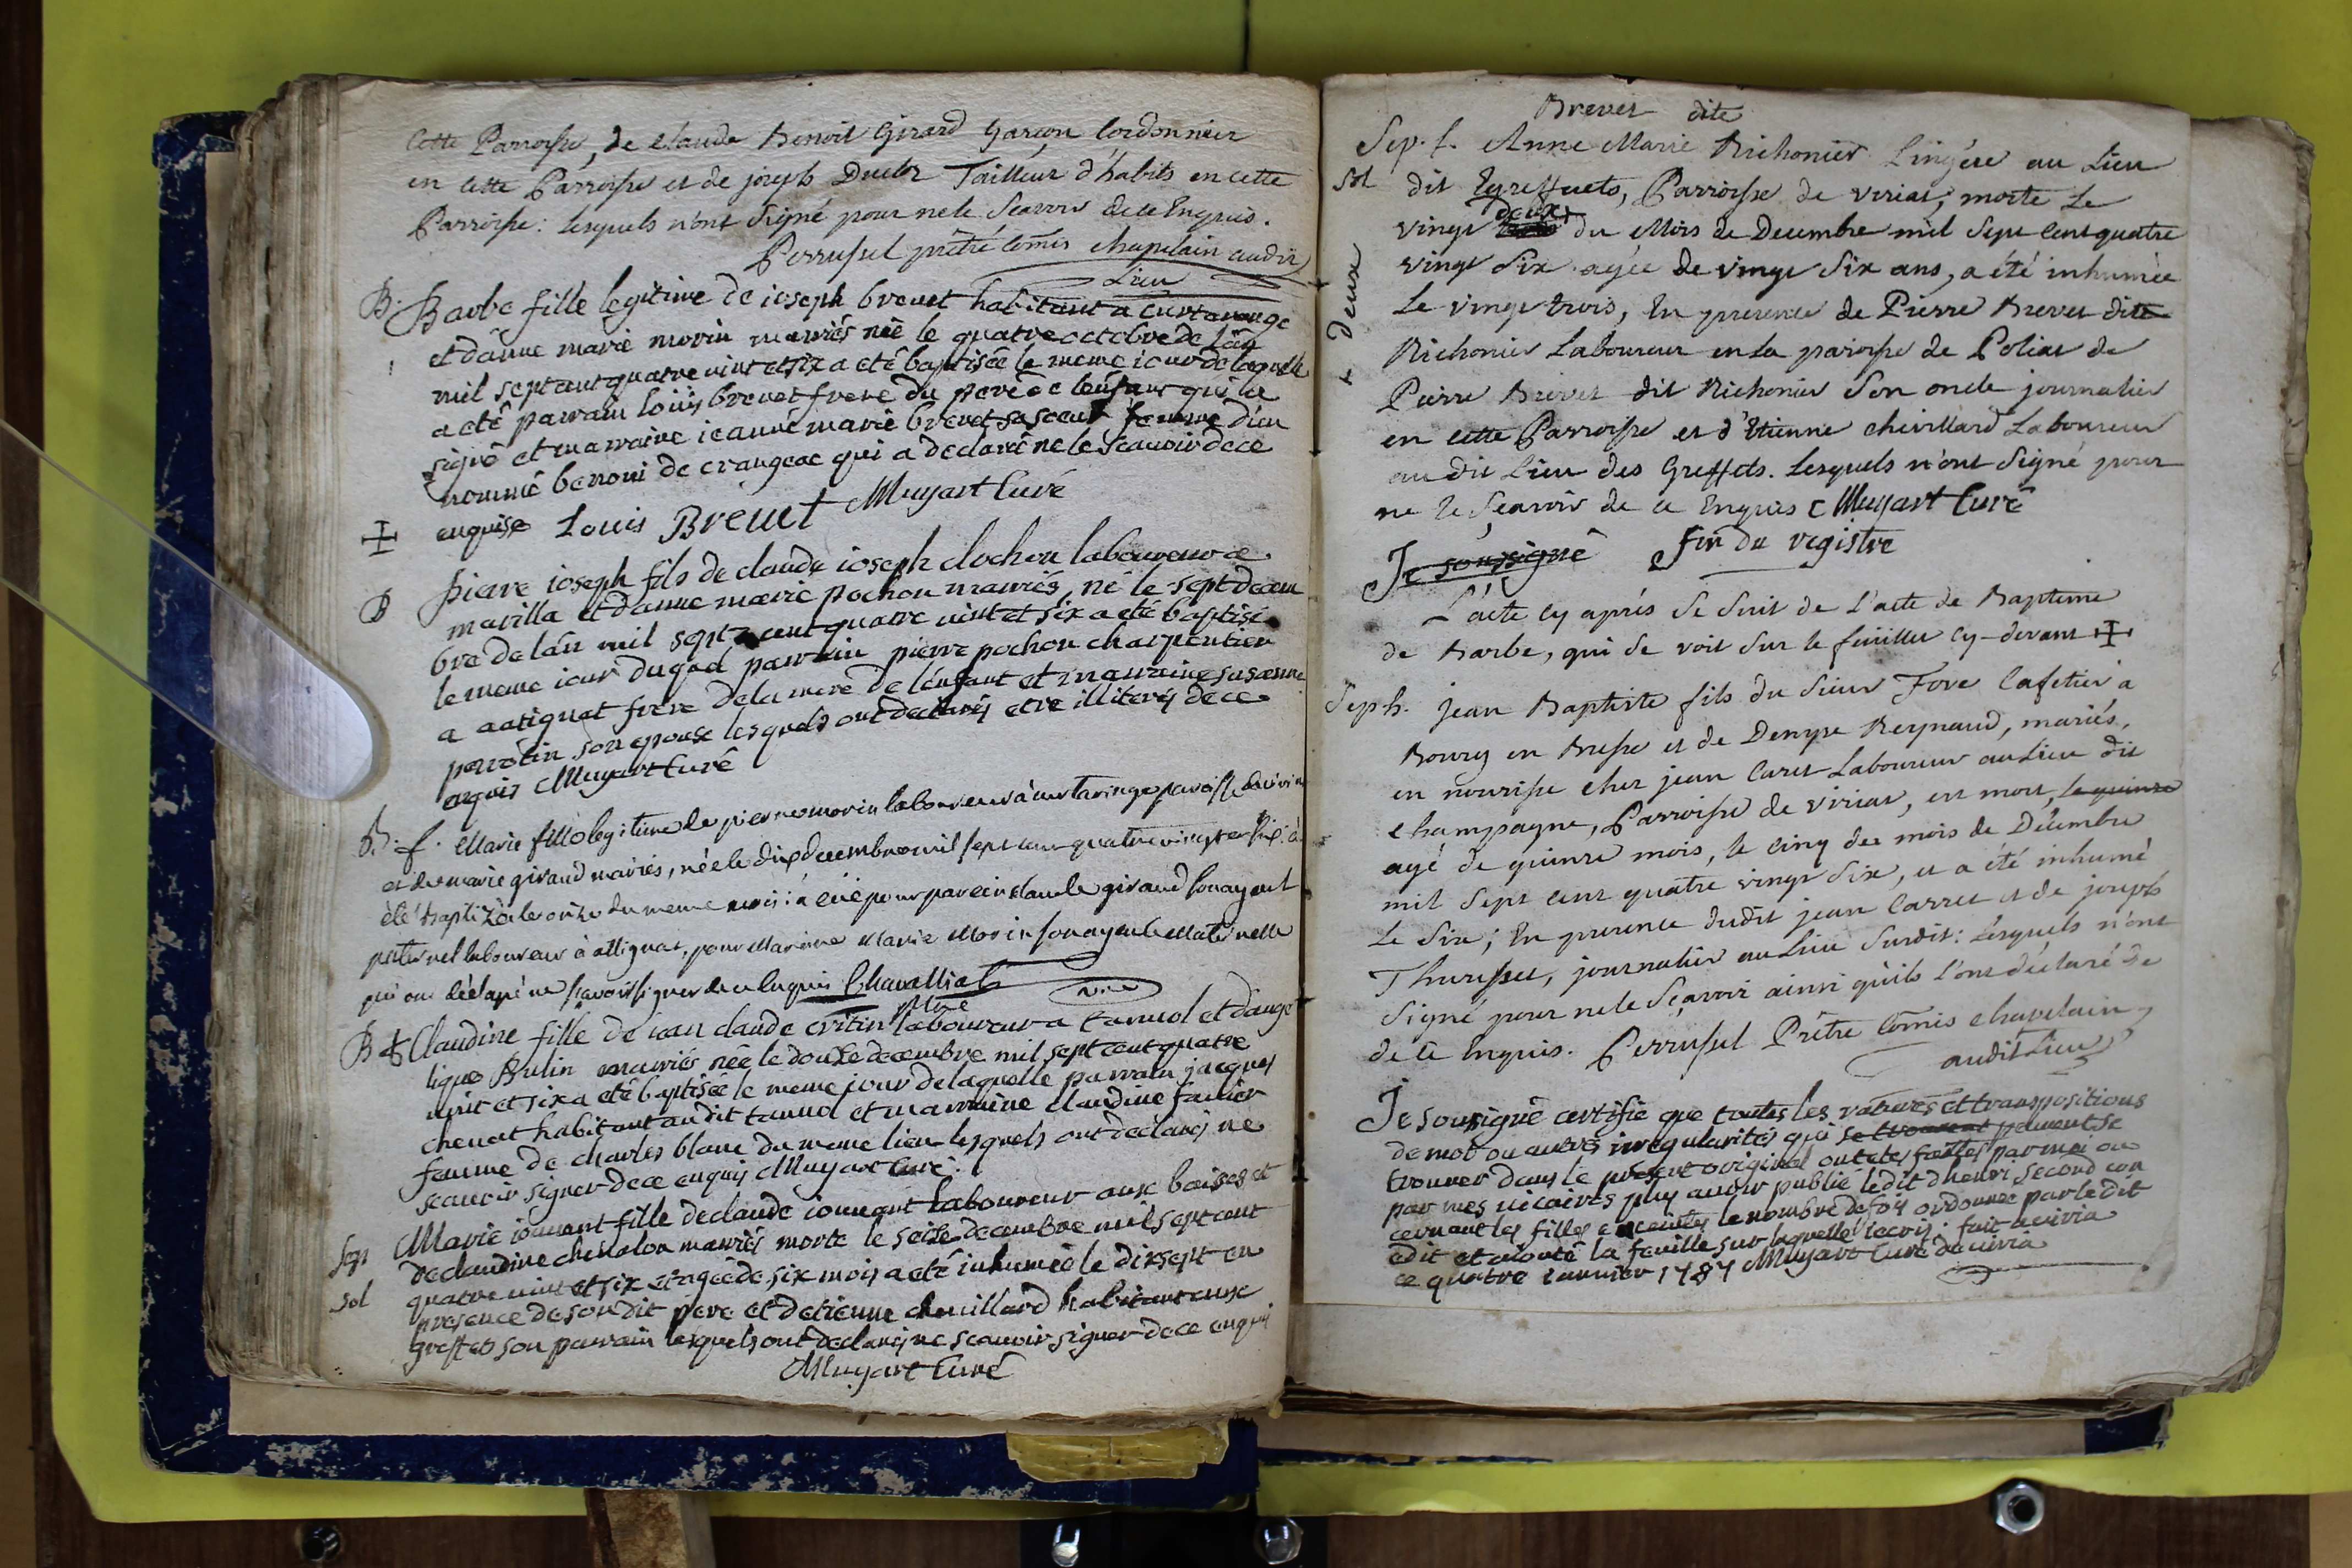 cette Parroisse, de Claude Benoit Girard Garçon Cordonnier
en cette Parroisse et de joseph Tailleur d'habits en cette
Parroisse: Lesquels n'ont Signé pour ne le Scavoir de ce Enquis.
Perrusel prêtre Comis chapelain audit
Lieu
B. Barbe fille legitime de ioseph brevet habitant a curtaringe
et danne marie morin mariés née le quatre octobre de lan
mil sept cent quatre vint et six a eté baptisée le meme iour de laquelle
a eté parrain loüis brevet frere du pere de lenfant qui a
signé et marraine ieanne marie brevet sa soeur femme d'un
nommé benoni de crangeac qui a declaré ne le scauoir de ce
enquise Louis Brevet Muyart Curé
B pierre ioseph fils de claude ioseph clochon laboureur a
mavilla et danne marie pochon mariés, né le sept decem
bre de lan mil sept cent quatre vint et six a eté baptisé
le meme iour duquel parrain pierre pochon charpentier
a attignat frere de la mere de lenfant et marraine susanne
perrotin son epouse lesquels ont declarés etre illiterés de ce
enquis Muyart Curé
B. f. Marie fille legitime de pierre morin laboureur à curtaringe paroisse de viria
et de marie giraud mariés, née le dix decembre mil sept cent quatre vingt et six: à
été baptizée le onze du meme mois: a eue pour parein claude giraud son ayeul
paternel laboureur à attignat, pour Marine Marie Morin son ayeule Maternelle
qui ont déclaré ne scavoir signer de ce Enquis Chavalliat
vic
B f Claudine fille de ian claude critin laboureur a tannol et dange
lique Bulin mariés née le douze decembre mil sept cent quatre
vint et six a eté baptisée le meme jour de laquelle parrain jacques
chenat habitant au dit tannol et marraine claudine favier
femme de charles blanc du meme lieu lesquels ont declarés ne
scauoir signer de ce enquis Muyart Curé.
Sep Marie ionnant fille de claude ionnant laboureur aux baises et
de claudine chevalon mariés morte le seize decembre mil sept cent
sol quatre vint et six et agée de six mois a eté inhumée le dixsept en
presence de son dit pere et detienne chevillard habitant aux
greffets son parrain lesquels ont declarés ne scauoir signer de ce enquis
Muyart Curé
Brevet dite
Sep. f. Anne Marie Richonier Lingére au Lieu
sol dit Egreffuets, Parroisse de viriat, morte Le
vingt deux du Mois de Decembre mil Sept Cent quatre
vingt Six agée de vingt Six ans, a été inhumée
Le vingt trois, En presence de Pierre Brevet dit
Richonier Laboureur en La paroisse de Poliat de
Pierre Brevet dit Richonier Son oncle journalier
en cette Parroisse et d'Etienne chevillard Laboureur
au dit Lieu des Greffets. Lesquels n'ont Signé pour
ne le Sçavoir de ce Enquis Muyart Curé
+ Deux
Je soussigné fin du registre
L'acte cy aprés Se Suit de L'acte de Baptême
de Barbe, qui Se voit Sur le feüillet Cy-devant
Sep h. jean Baptiste fils du Sieur Fore Cafetier a
Bourg en Bresse et de Denyse Reynaud, mariés,
en nourisse chez jean Caret Laboureur au Lieu dit
champagne, Parroisse de viriat, est mort, le quinze
agé de quinze mois, le Cinq du mois de Décembre
mil Sept Cent quatre vingt Six, et a été inhumé
Le Six; En presence dudit jean Carret et de joseph
Thurisset, journalier au Lieu Susdit: Lesquels n'ont
Signé pour ne le Sçavoir ainsi qu'ils l'ont déclaré de
de Ce Enquis. Perrusel Prêtre Comis chapelain
audit Lieu
Je sousigné certifie que toutes les ratures et transpositions
de mot ou autres irregularités qui se trouvent peuvent se
trouver dans le présent original ont eté faites par moi ou
par mes vicaires plus avoir publié ledit dhenri second con
cernant les filles enceintes le nombre de fois ordonné par le dit
edit et aiouté la feuille sur laquelle iecris: fait a viria
ce quatre ianvier 1787 Muyart Curé de viria